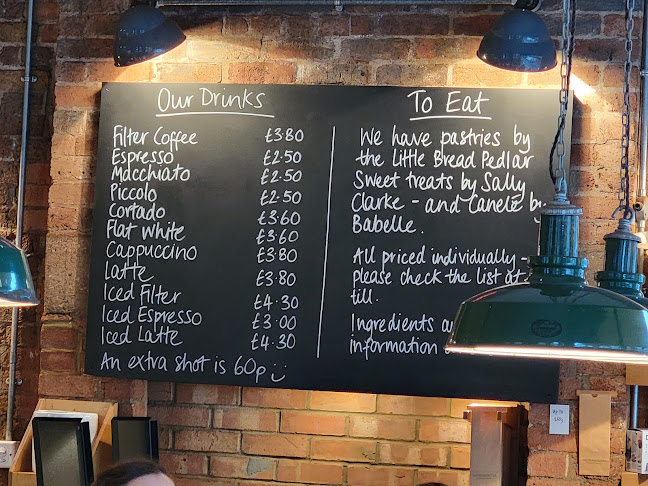 Our Drinks
Filter Coffee £3.80
Espresso £2.50
Macchiato £2.50
Piccolo £2.50
Cortado £3.60
Flat White £3.60
Cappuccino £3.80
Latte £3.80
Iced Filter £4.30
Iced Espresso £3.00
Iced Latte £4.30
An extra shot is 60p
To Eat
We have pastries by
the Little Bread Pedlar
Sweet treats by Sally
Clarke - and Canele by
Babelle.
All priced individually -
please check the list at
till.
Ingredients
information